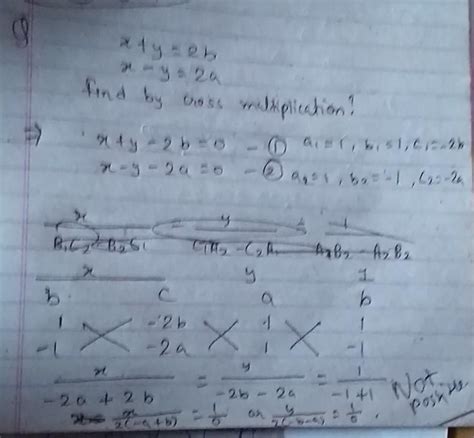 Q
x+y=2b
x-y=2a
find by cross multiplication?
⇒ x+y-2b=0 - ① a₁=1, b₁=1, c₁=-2b
x-y-2a=0 - ② a₂=1, b₂=-1, c₂=-2a
x = y = 1
B₁C₂-B₂C₁ C₁A₂-C₂A₁ A₁B₂-A₂B₂
x y 1
b c a b
1 -2b 1 1
-1 -2a 1 -1
x = y = 1
-2a+2b -2b-2a -1+1
Not possible
x/2(-a+b) = 1/0 or y/2(-b-a) = 1/0.